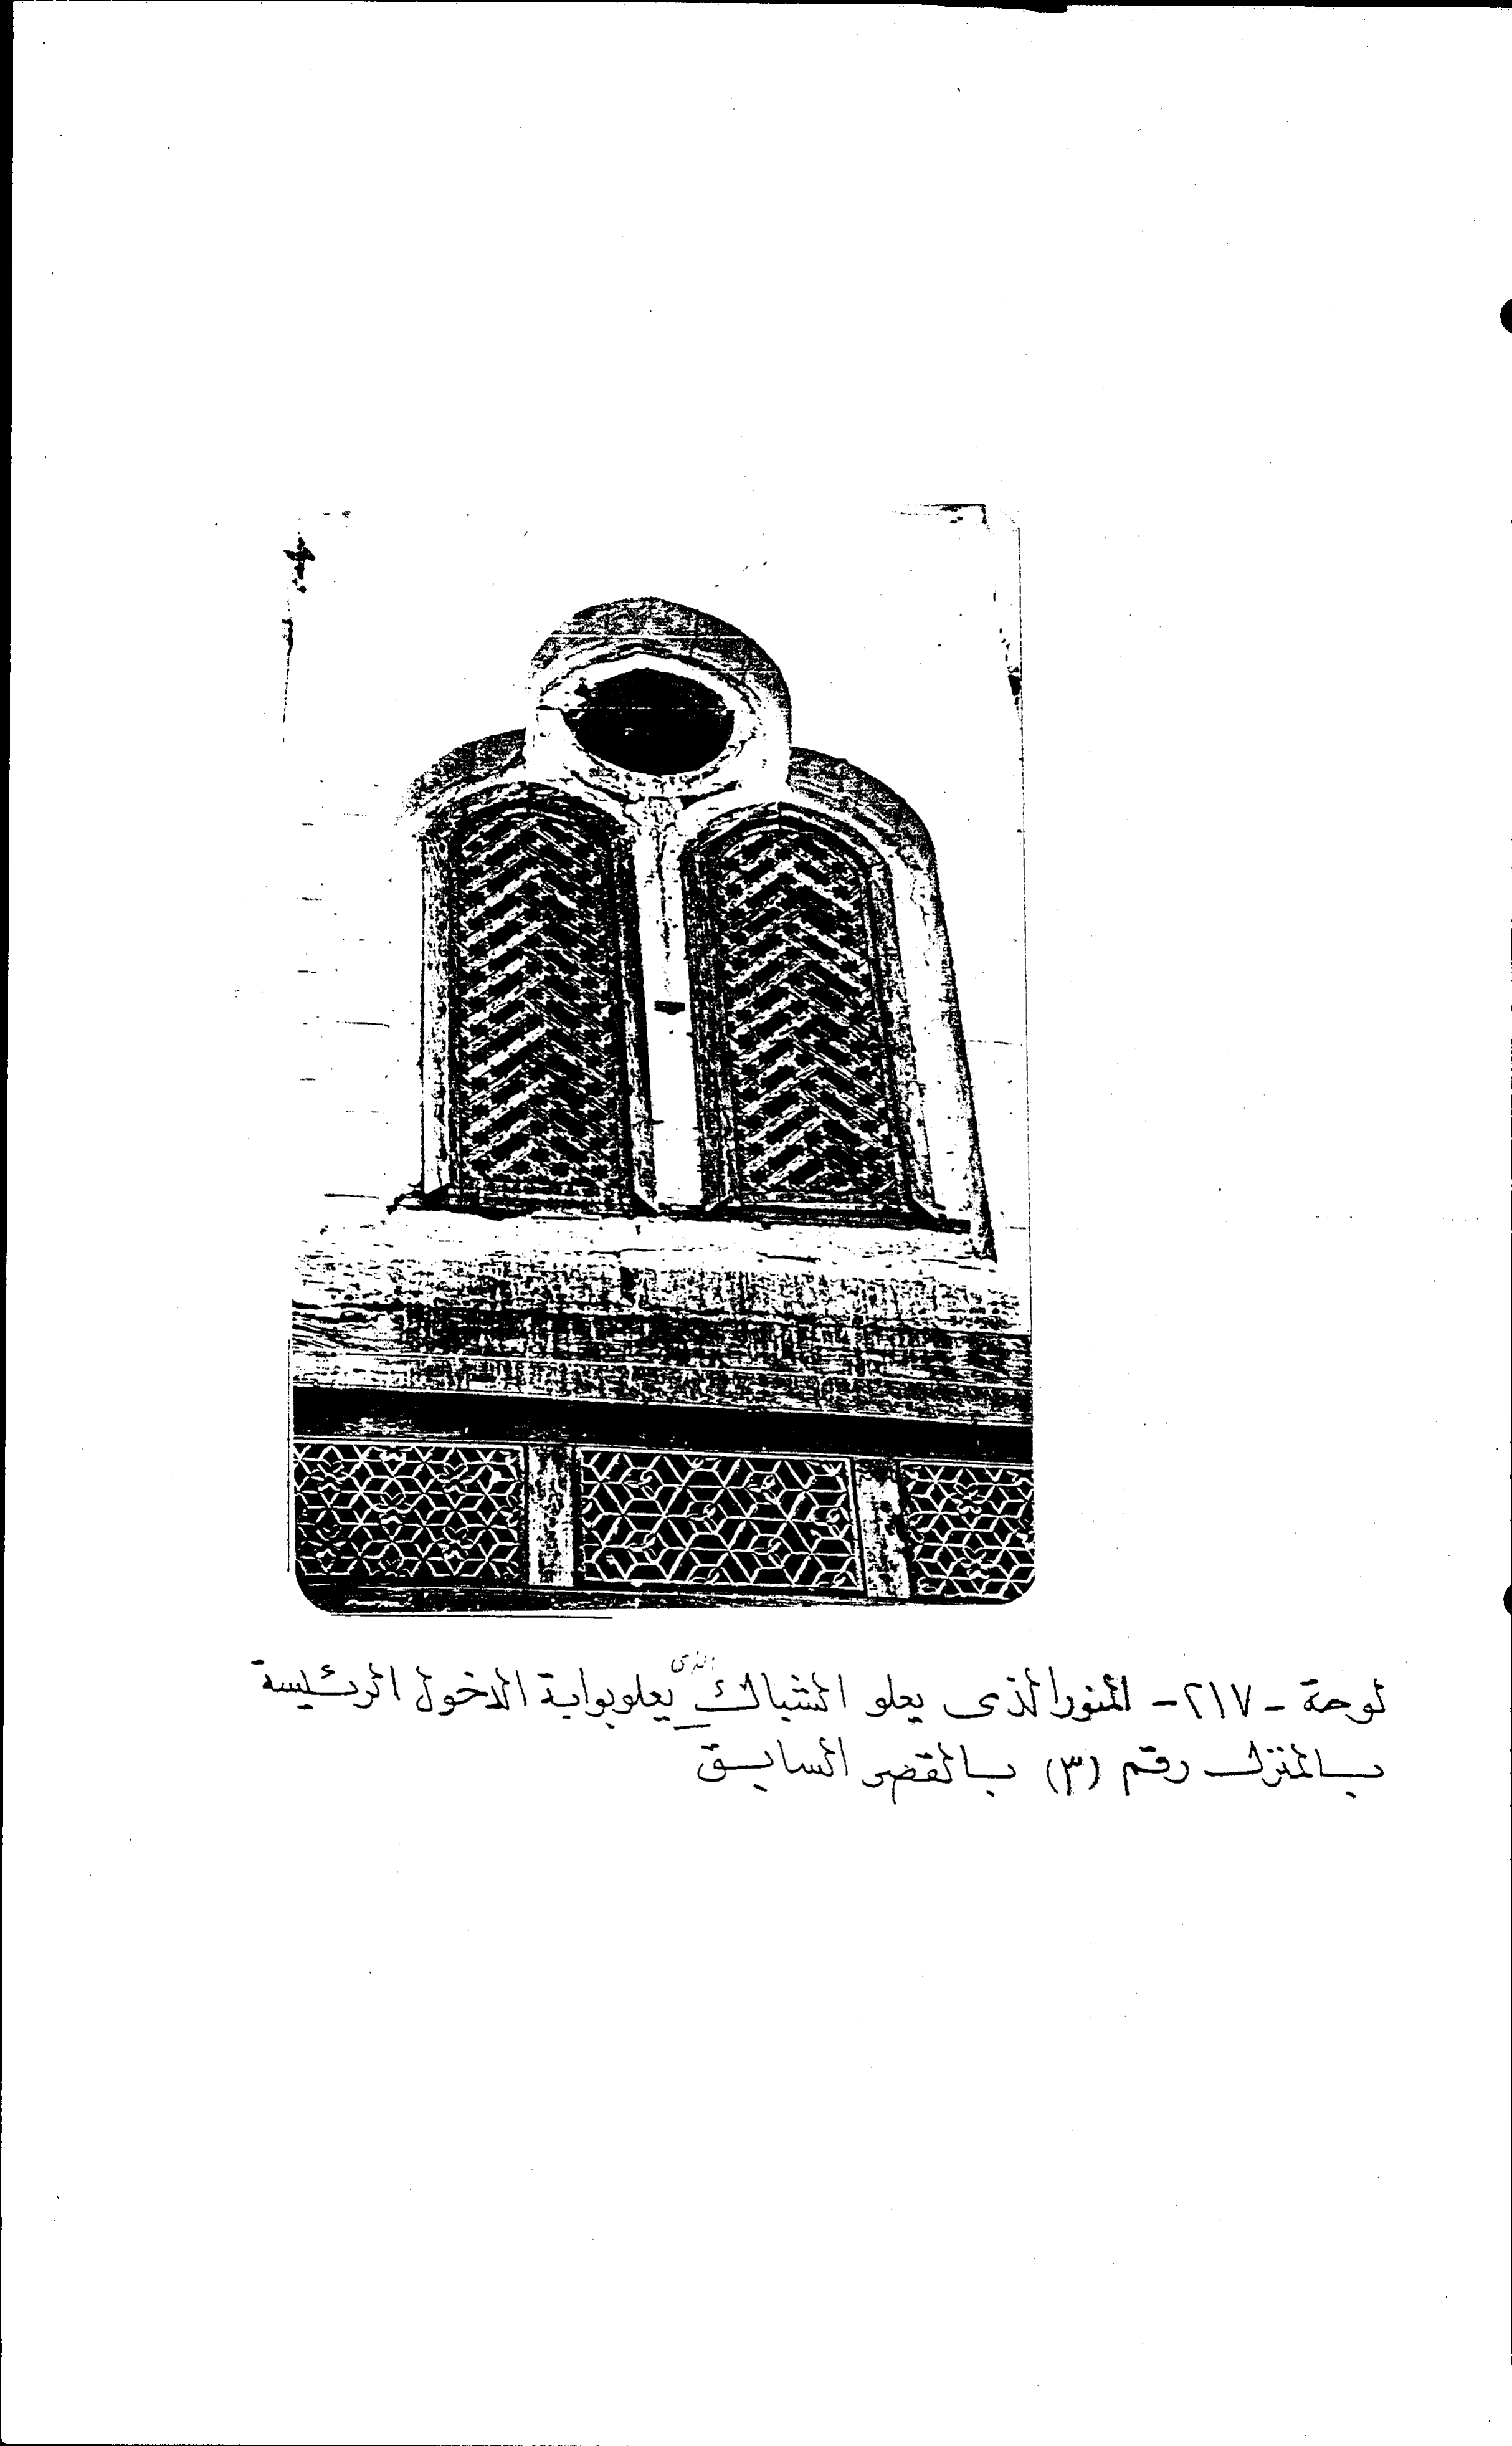 لوحة - ٢١٧ - المنور الذى يعلو الشباك الذى يعلو بوابة الدخول الرئيسة
بالمنزل رقم (٣) بالقصر السابق